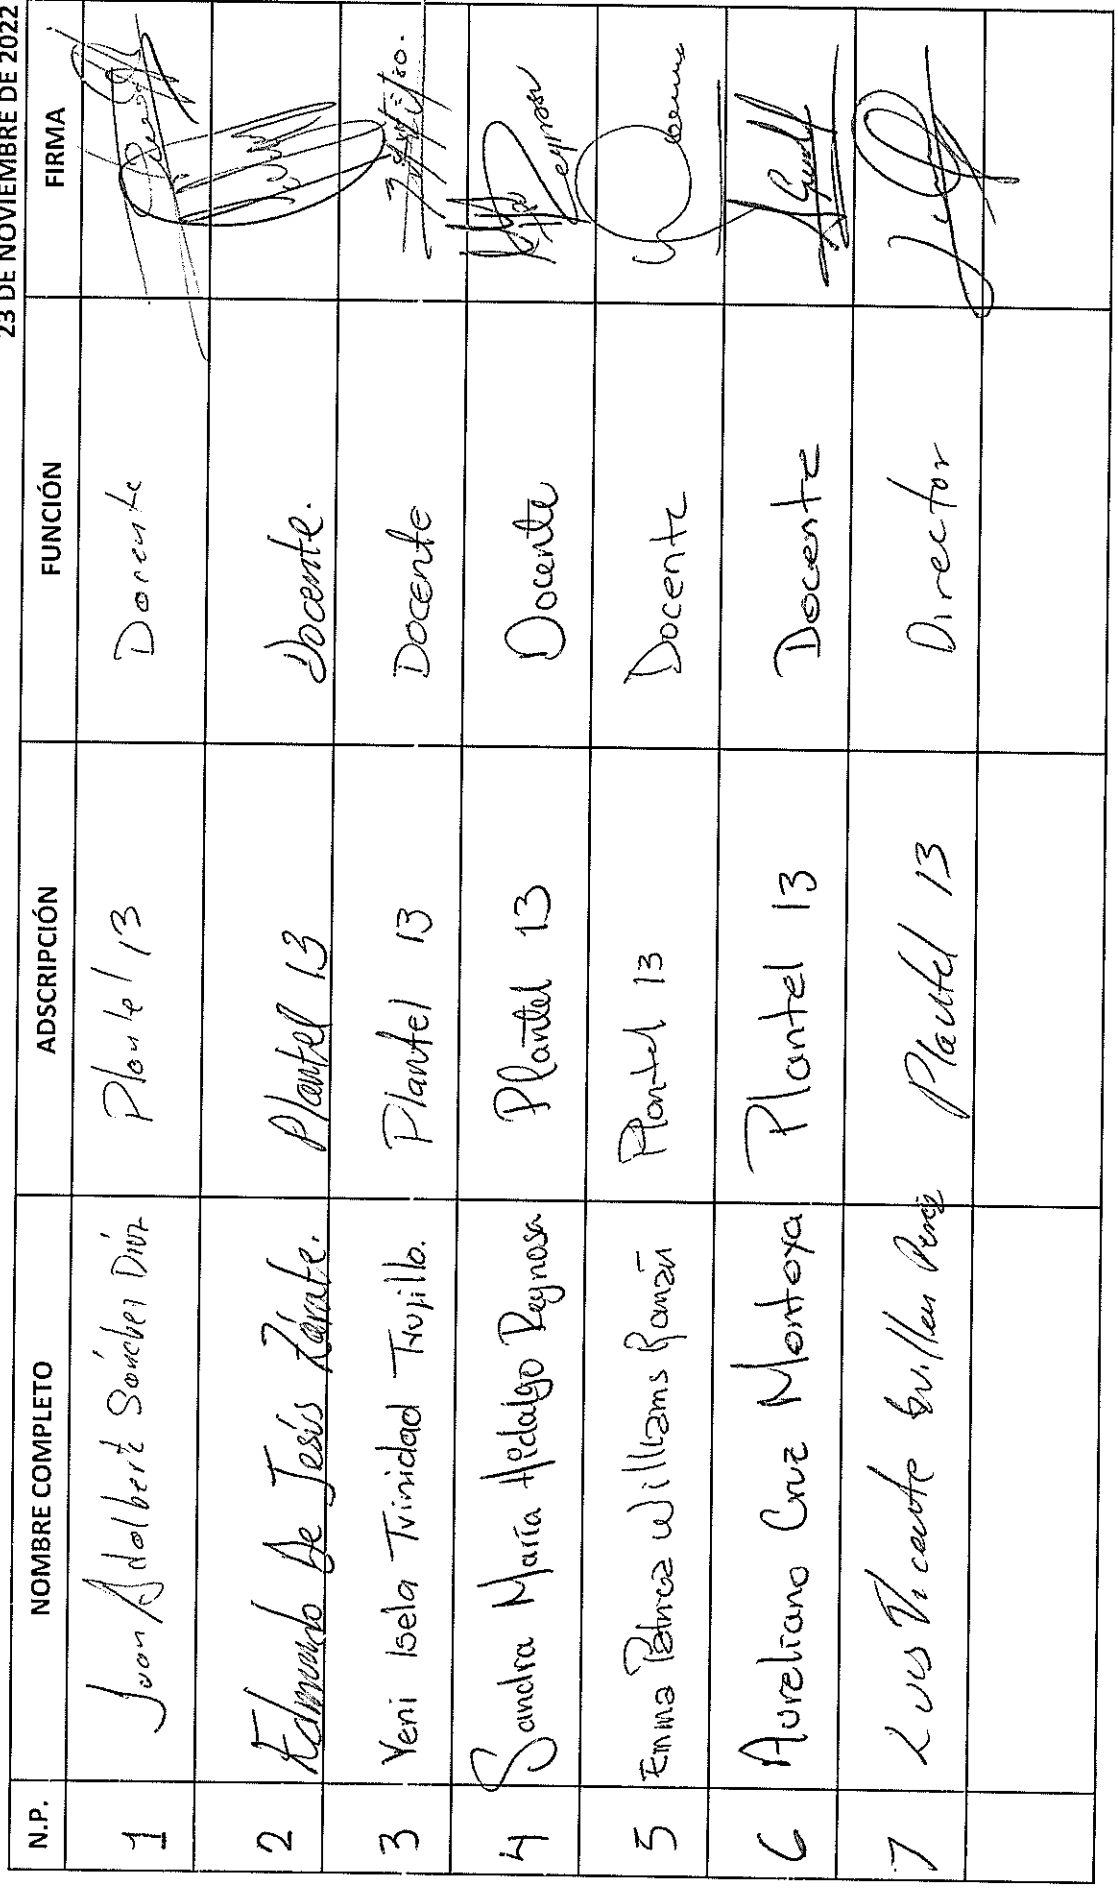 23 DE NOVIEMBRE DE 2022
N.P. NOMBRE COMPLETO ADSCRIPCIÓN FUNCIÓN FIRMA
1 Juan Adalbert Sánchez Díaz Plantel 13 Docente
2 Edmundo De Jesús Zárate. Plantel 13 Docente.
3 Yeni Isela Trinidad Trujillo. Plantel 13 Docente
4 Sandra María Hidalgo Reynosa Plantel 13 Docente Reynosa
5 Emma Patricia Williams Román Plantel 13 Docente
6 Aureliano Cruz Montoya Plantel 13 Docente
7 Luis Vicente Guillen Perez Plantel 13 Director